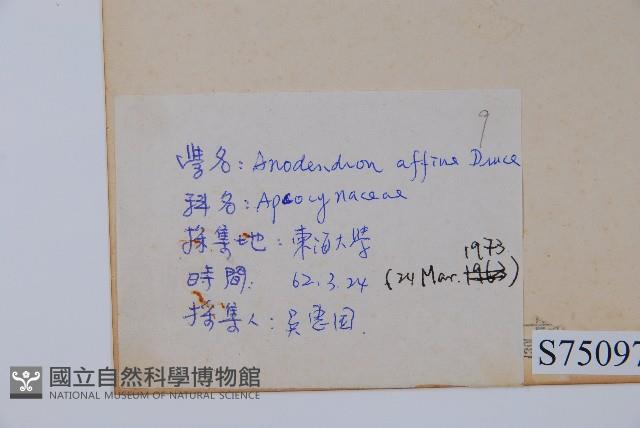 9
學名: Anodendron affine Druce
科名: Apocynaceae
採集地: 東海大學
時間. 62.3.24 (24 Mar. 1973)
採集人: 吳憲国.
S75097
國立自然科學博物館
NATIONAL MUSEUM OF NATURAL SCIENCE